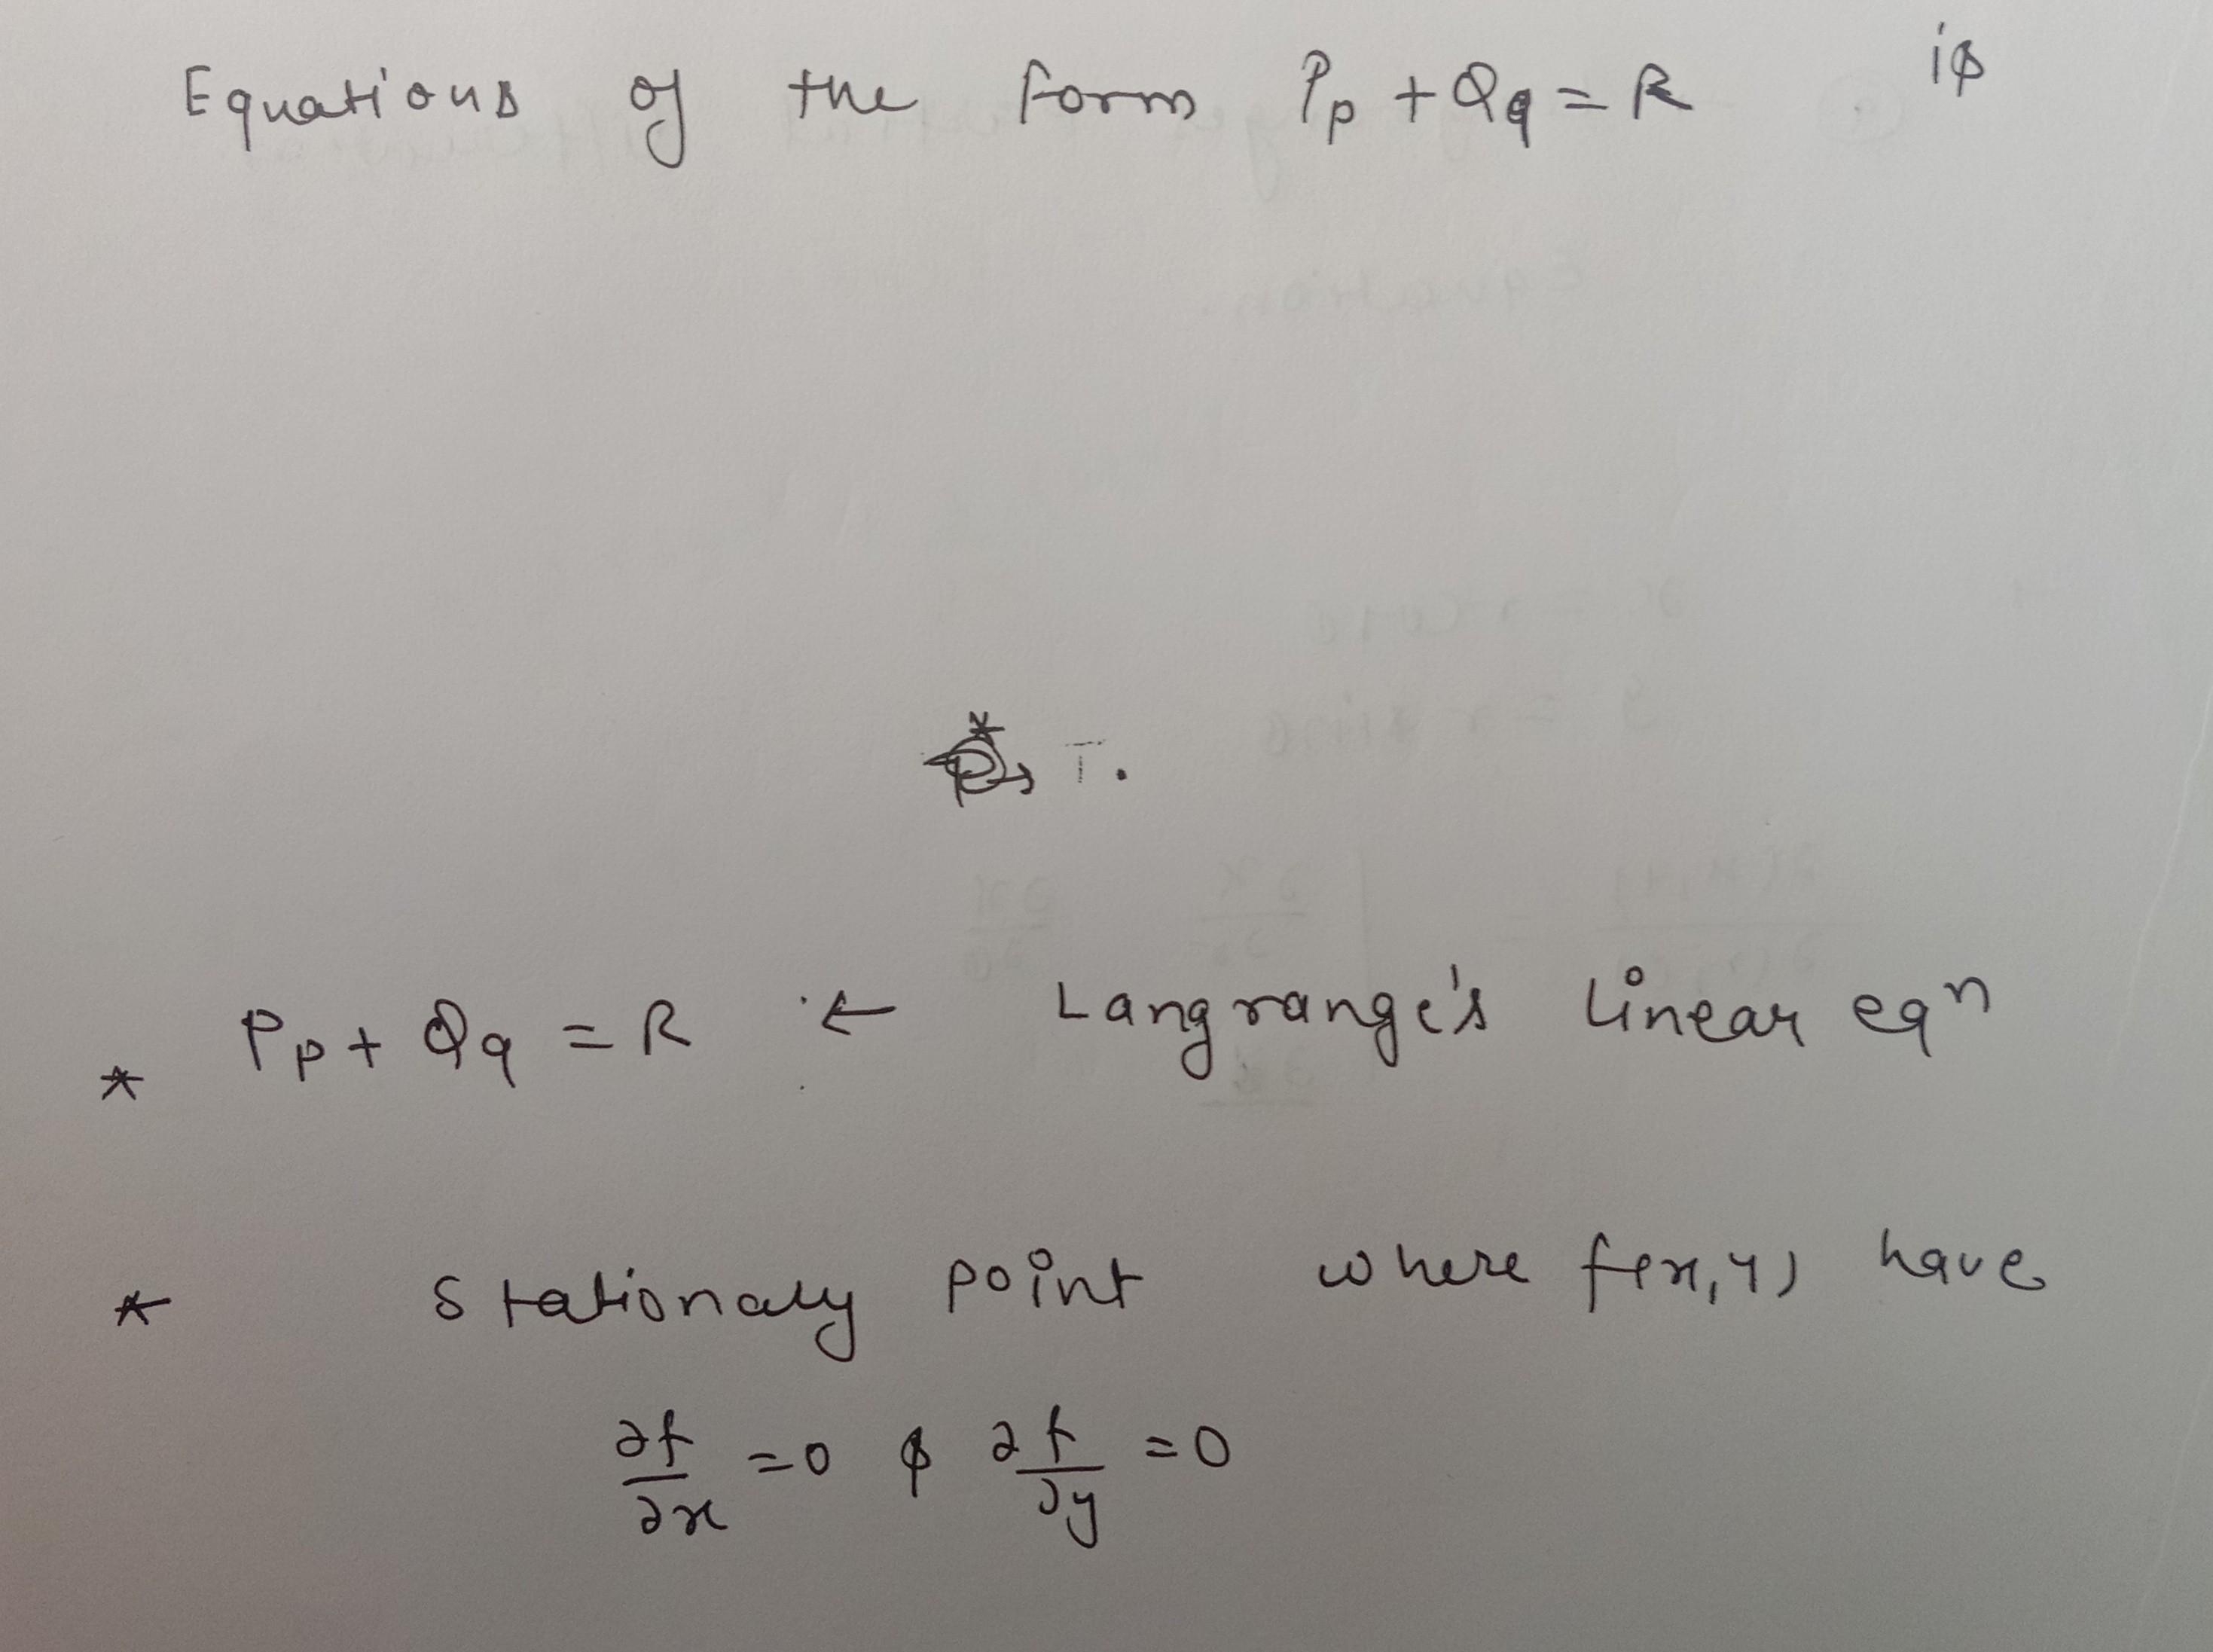 Equations of the form Pp + Qq = R is
* T.
* Pp + Qq = R ← Langrange's linear eqn
* Stationary point where f(x,y) have
∂f/∂x = 0 & ∂f/∂y = 0